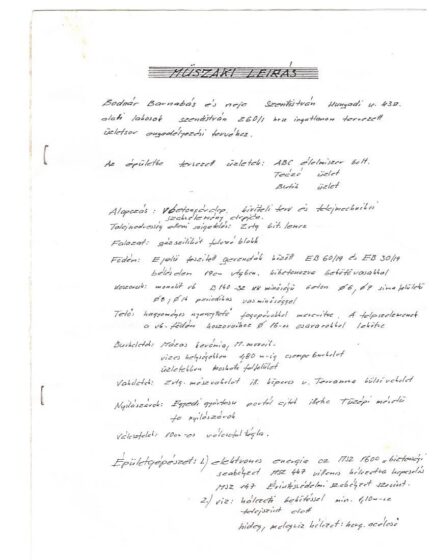 MŰSZAKI LEIRÁS
Bodnár Barnabás és neje Szentistván Hunyadi u. 43.
alatti lakosok Szentistván 260/1 hru ingatlanon tervezett
üzletsor engedélyezési tervéhez.
Az épületbe tervezett üzletek: ABC élelmiszer bolt.
Teázó üzlet
Butik üzlet
Alapozás: kiviteli terv és talajmechanikai
szakvélemény alapján.
Talajnedvesség elleni szigetelés: 2 rtg bit. lemez
Falazat: gázszilikát falazó blokk
Födém: Előre feszített gerendák között EB 60/19 és EB 30/19
béléstest 19 cm vtgban, kibetonozva bekötővasakkal
Koszorúk: monolit vb minőségű beton Ø 8, sima felületű
Ø 8, Ø 14 periodikus vasminőséggel
Tető: hagyományos fogópárokkal merevítve. A talpszelemenek
a vb. födém koszorúihoz Ø 16-os csavarokkal lekötve
Burkolatok: Mázas kerámia,
vizes helyiségekben 1,80 m-ig csempe burkolat
üzletekben mosható falfelület
Vakolatok: 2 rtg. mészvakolat ill. u. Terranova külső vakolat
Nyílászárók: Egyedi gyártású portál ajtók illetve Tüzépi méretű
fa nyílászárók
Válaszfalak: 10 cm-es válaszfaltégla.
Épületgépészet: 1) elektromos energia az MSZ 1600 biztonsági
szabályzat MSZ 447 villamos hálózatra kapcsolás
MSZ 147 Érintésvédelmi szabályzat szerint.
2) víz: hálózati bekötéssel min. 1,10 m-re
terepszint alatt
hideg, melegvíz hálózat: horg. acélcső